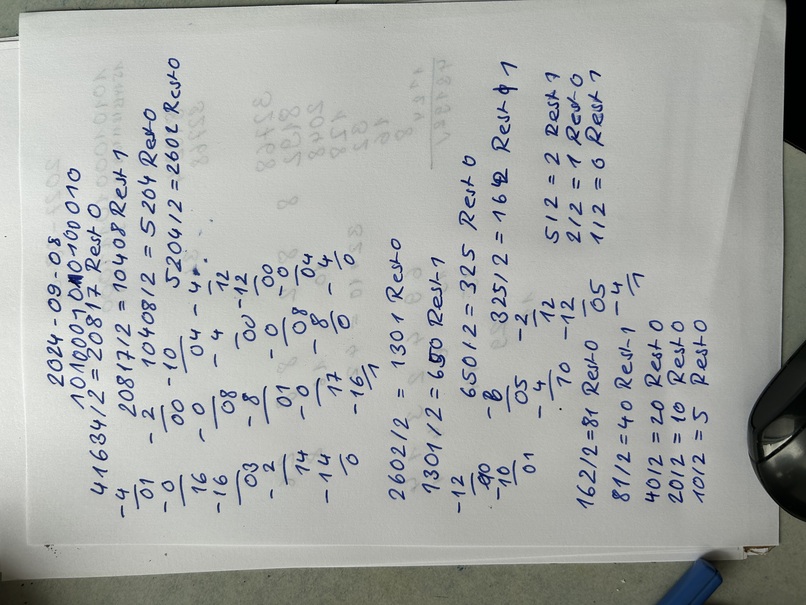 2024-09-08
1010001010100010
41634/2 = 20817 Rest 0
-4 20817/2 = 10408 Rest 1
01 -2 10408/2 = 5204 Rest 0
-0 00 -10 5204/2 = 2602 Rest 0
16 -0 04 -4
-16 08 -4 12
03 -8 00 -12
-2 01 -0 00
14 -0 08 -0
-14 17 -8 04
0 -16 0 -4
1 0
2602/2 = 1301 Rest 0
1301/2 = 650 Rest 1
-12 650/2 = 325 Rest 0
10 -6 325/2 = 162 Rest 1
-10 05 -2
01 -4 12
10 -12
5/2 = 2 Rest 1
2/2 = 1 Rest 0
1/2 = 0 Rest 1
162/2 = 81 Rest 0 05
81/2 = 40 Rest 1 -4
1
40/2 = 20 Rest 0
20/2 = 10 Rest 0
10/2 = 5 Rest 0